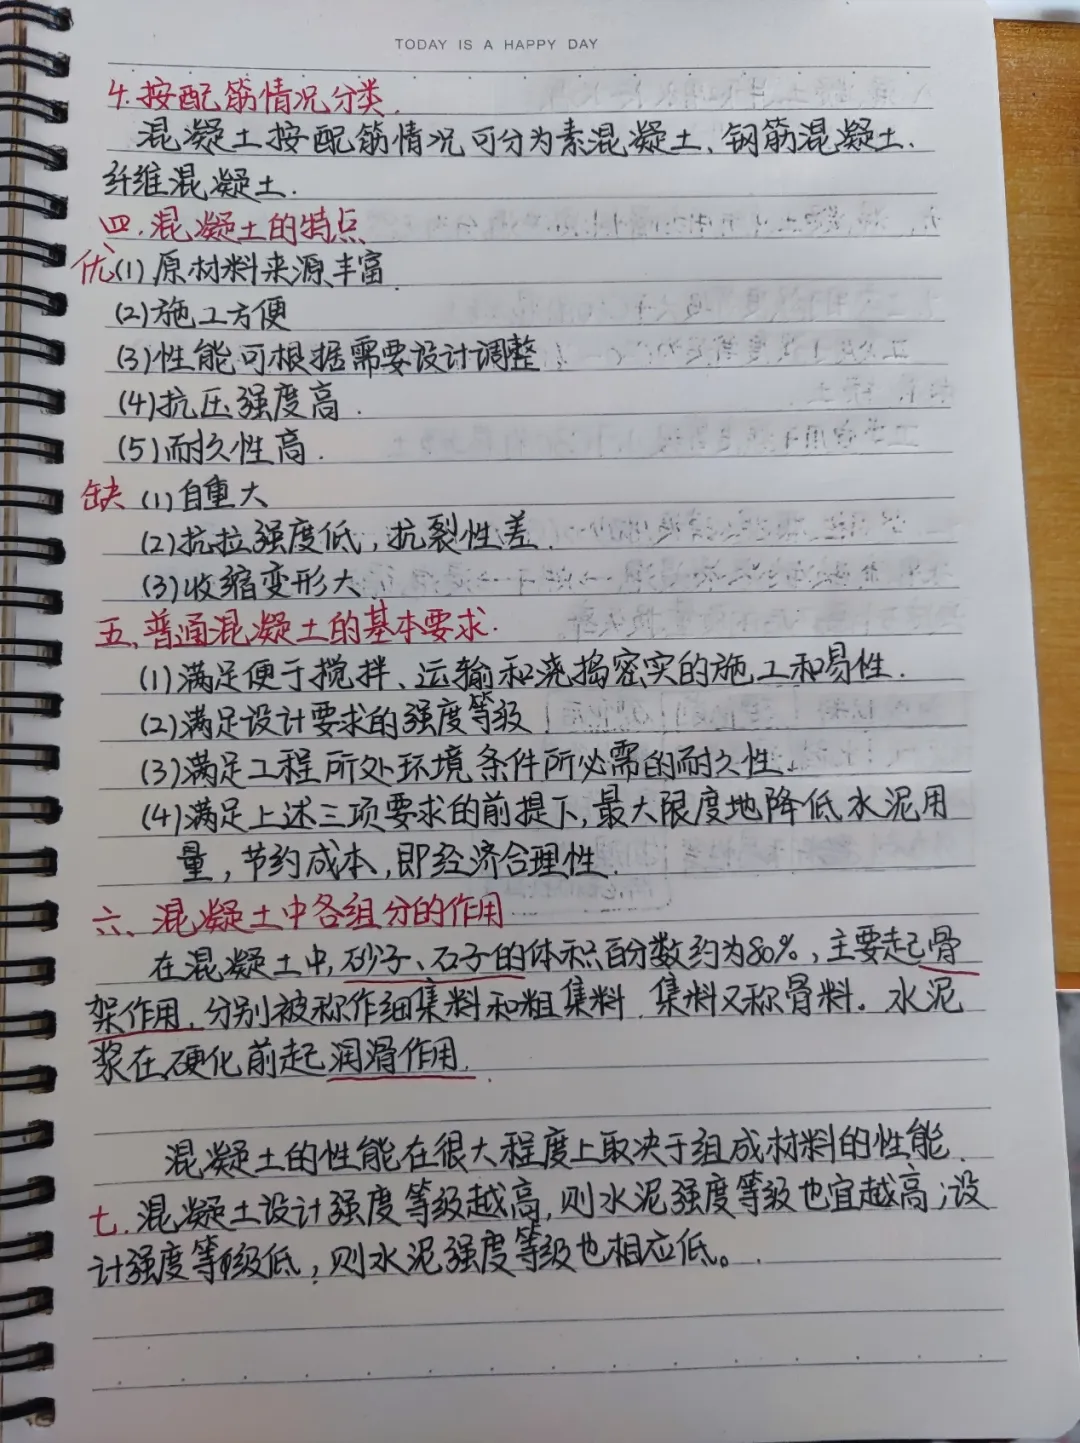 TODAY IS A HAPPY DAY
4.按配筋情况分类.
混凝土按配筋情况可分为素混凝土、钢筋混凝土、
纤维混凝土.
四.混凝土的特点
优(1)原材料来源丰富.
(2)施工方便
(3)性能可根据需要设计调整
(4)抗压强度高.
(5)耐久性高.
缺(1)自重大
(2)抗拉强度低,抗裂性差.
(3)收缩变形大
五、普通混凝土的基本要求.
(1)满足便于搅拌、运输和浇捣密实的施工和易性.
(2)满足设计要求的强度等级
(3)满足工程所处环境条件所必需的耐久性.
(4)满足上述三项要求的前提下,最大限度地降低水泥用
量,节约成本,即经济合理性.
六、混凝土中各组分的作用
在混凝土中,砂子、石子的体积百分数约为80%,主要起骨
架作用,分别被称作细集料和粗集料.集料又称骨料。水泥
浆在硬化前起润滑作用.
混凝土的性能在很大程度上取决于组成材料的性能.
七.混凝土设计强度等级越高,则水泥强度等级也宜越高;设
计强度等级低,则水泥强度等级也相应低。